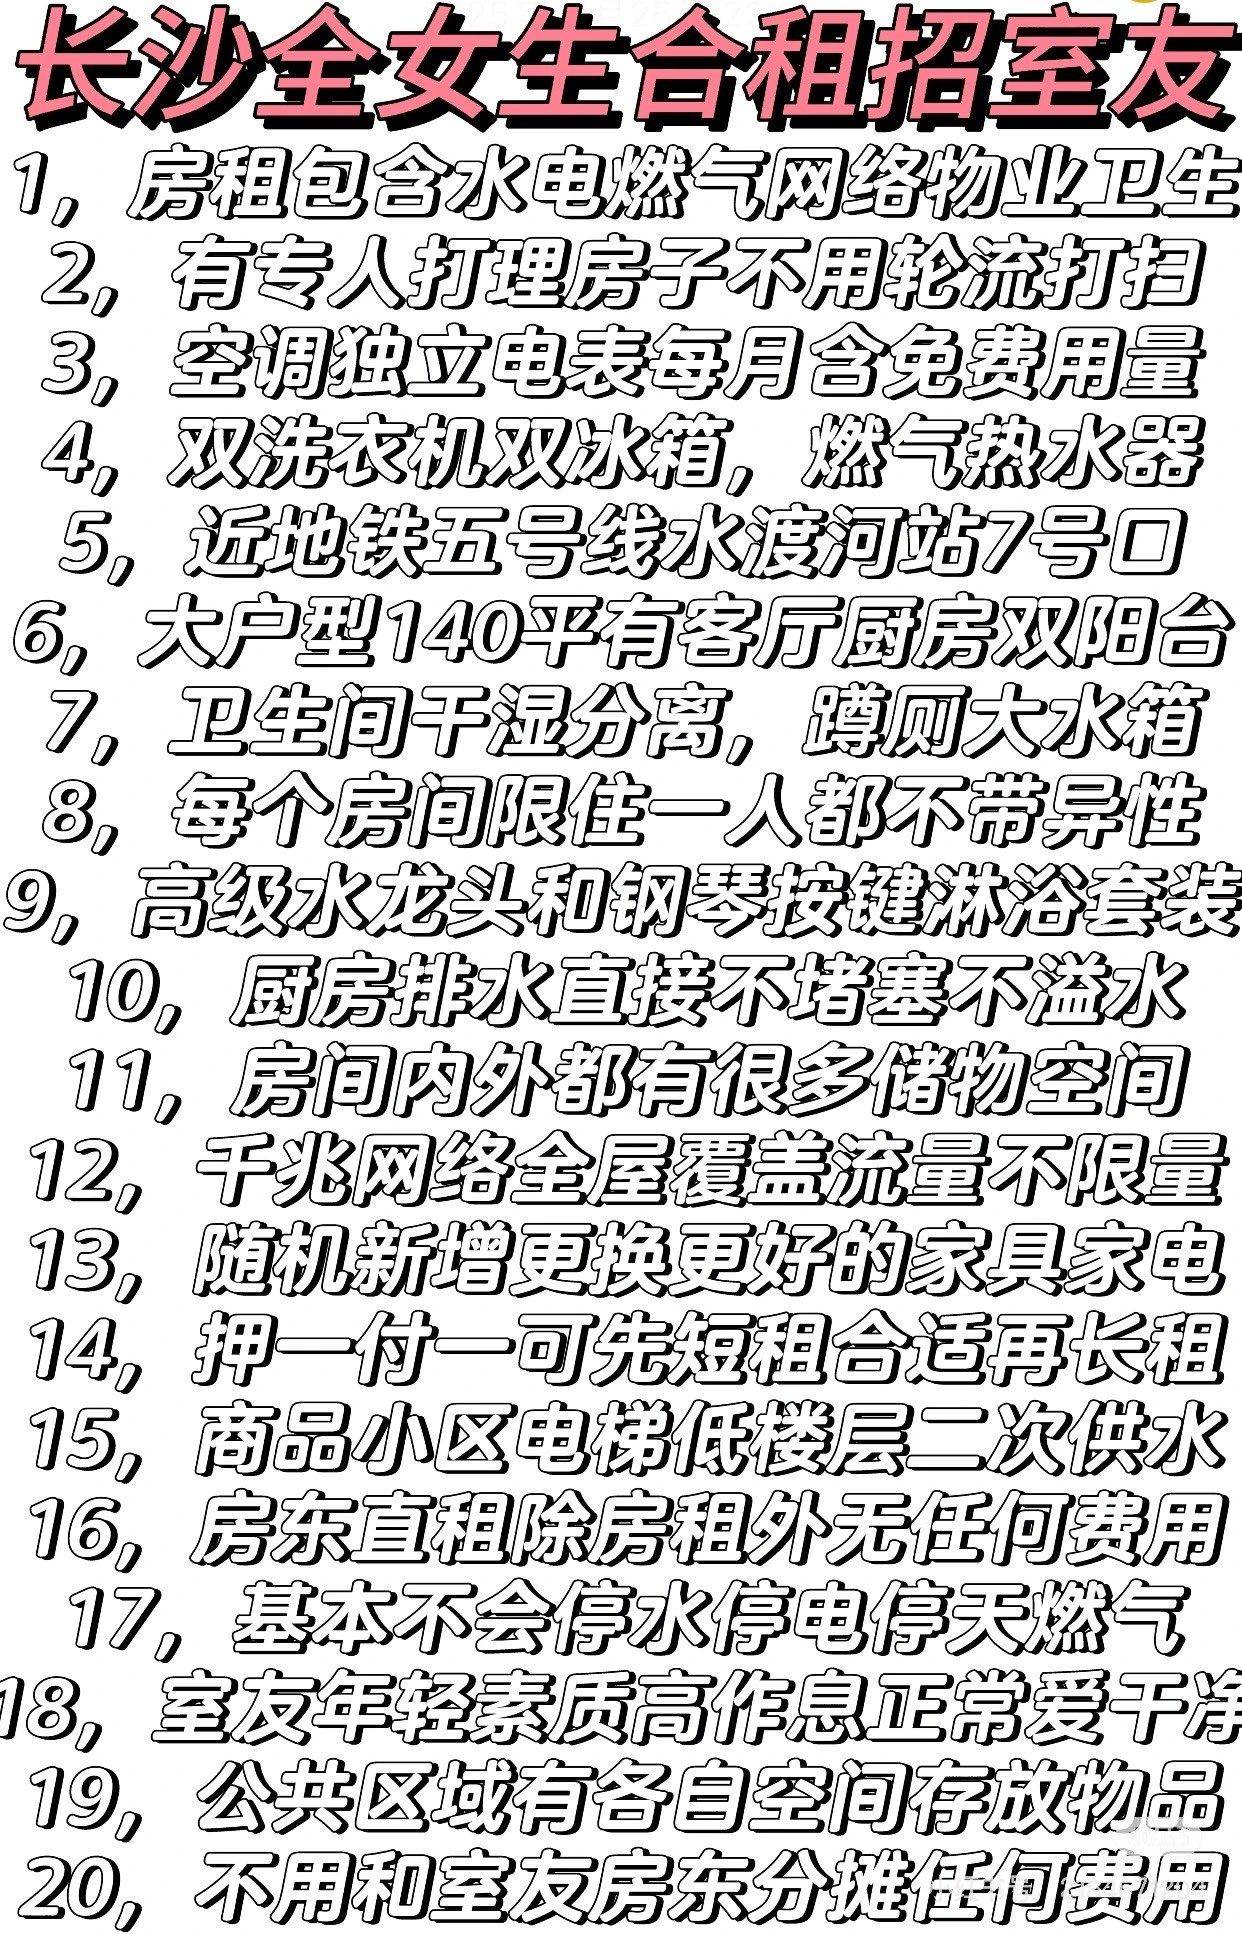 长沙全女生合租招室友
1，房租包含水电燃气网络物业卫生
2，有专人打理房子不用轮流打扫
3，空调独立电表每月含免费用量
4，双洗衣机双冰箱，燃气热水器
5，近地铁五号线水渡河站7号口
6，大户型140平有客厅厨房双阳台
7，卫生间干湿分离，蹲厕大水箱
8，每个房间限住一人都不带异性
9，高级水龙头和钢琴按键淋浴套装
10，厨房排水直接不堵塞不溢水
11，房间内外都有很多储物空间
12，千兆网络全屋覆盖流量不限量
13，随机新增更换更好的家具家电
14，押一付一可先短租合适再长租
15，商品小区电梯低楼层二次供水
16，房东直租除房租外无任何费用
17，基本不会停水停电停天燃气
18，室友年轻素质高作息正常爱干净
19，公共区域有各自空间存放物品
20，不用和室友房东分摊任何费用